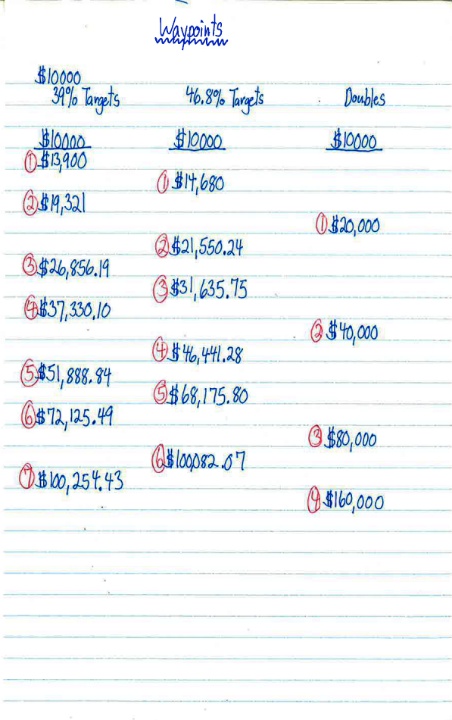 Waypoints
$10000
39% Targets 46.8% Targets Doubles
$10000 $10000 $10000
① $13,900
① $14,680
② $19,321
① $20,000
② $21,550.24
③ $26,856.19
③ $31,635.75
④ $37,330.10
② $40,000
④ $46,441.28
⑤ $51,888.84
⑤ $68,175.80
⑥ $72,125.49
③ $80,000
⑥ $100,082.07
⑦ $100,254.43
④ $160,000